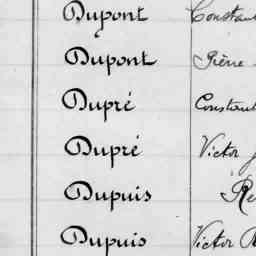 Dupont Constant
Dupont Pierre
Dupré Constant
Dupré Victor
Dupuis
Dupuis Victor